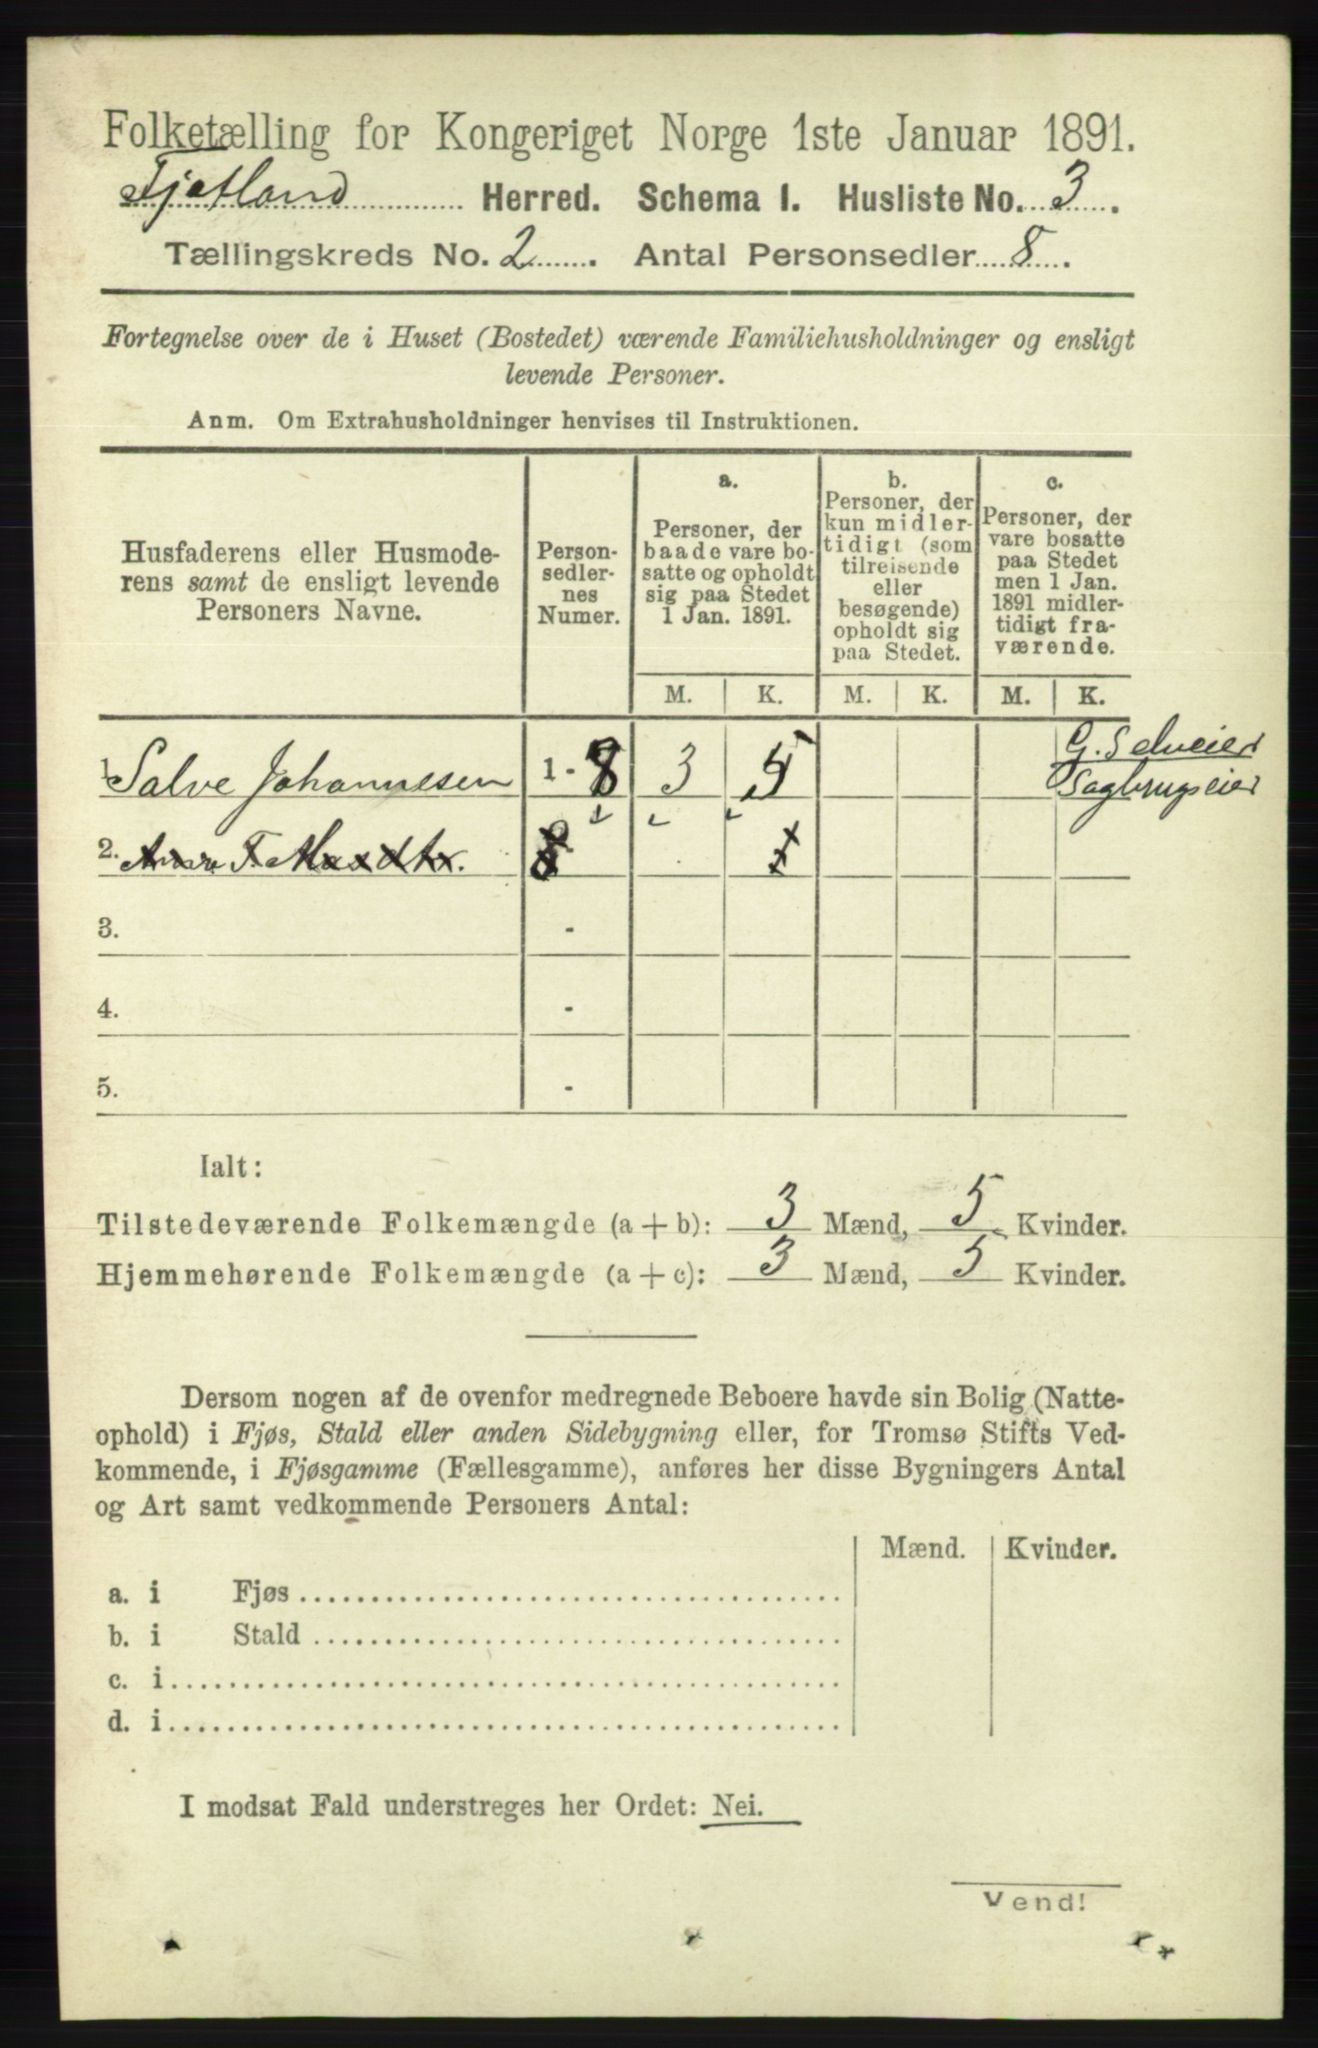 Folketælling for Kongeriget Norge 1ste Januar 1891.
Fjotland Herred. Schema I. Husliste No. 3.
Tællingskreds No. 2. Antal Personsedler 8.
Fortegnelse over de i Huset (Bostedet) værende Familiehusholdninger og ensligt
levende Personer.
Anm. Om Extrahusholdninger henvises til Instruktionen.
Husfaderens eller Husmode-
rens samt de ensligt levende
Personers Navne.
Person-
sedler-
nes
Numer.
a.
Personer, der
baade vare bo-
satte og opholdt
sig paa Stedet
1 Jan. 1891.
b.
Personer, der
kun midler-
tidigt (som
tilreisende
eller
besøgende)
opholdt sig
paa Stedet.
c.
Personer, der
vare bosatte
paa Stedet
men 1 Jan.
1891 midler-
tidigt fra-
værende.
M. K. M. K. M. K.
G. Selveier
1. Salve Johannesen 1 - 8 3 5 Sagbrugseier
2. T.
3. -
4. -
5. -
Ialt:
Tilstedeværende Folkemængde (a + b): 3 Mænd, 5 Kvinder.
Hjemmehørende Folkemængde (a + c): 3 Mænd, 5 Kvinder.
Dersom nogen af de ovenfor medregnede Beboere havde sin Bolig (Natte-
ophold) i Fjøs, Stald eller anden Sidebygning eller, for Tromsø Stifts Ved-
kommende, i Fjøsgamme (Fællesgamme), anføres her disse Bygningers Antal
og Art samt vedkommende Personers Antal:
Mænd. Kvinder.
a. i Fjøs
b. i Stald
c. i
d. i
I modsat Fald understreges her Ordet: Nei.
Vend!